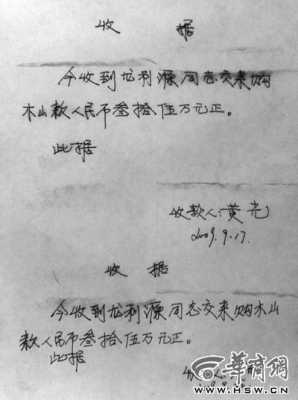 收 据
今收到龙利源同志交来购
木山款人民币叁拾伍万元正。
此据
收款人:黄光
2009.9.17.
收 据
今收到龙利源同志交来购木山
款人民币叁拾伍万元正。
此据
收
华商网
WWW.HSW.CN